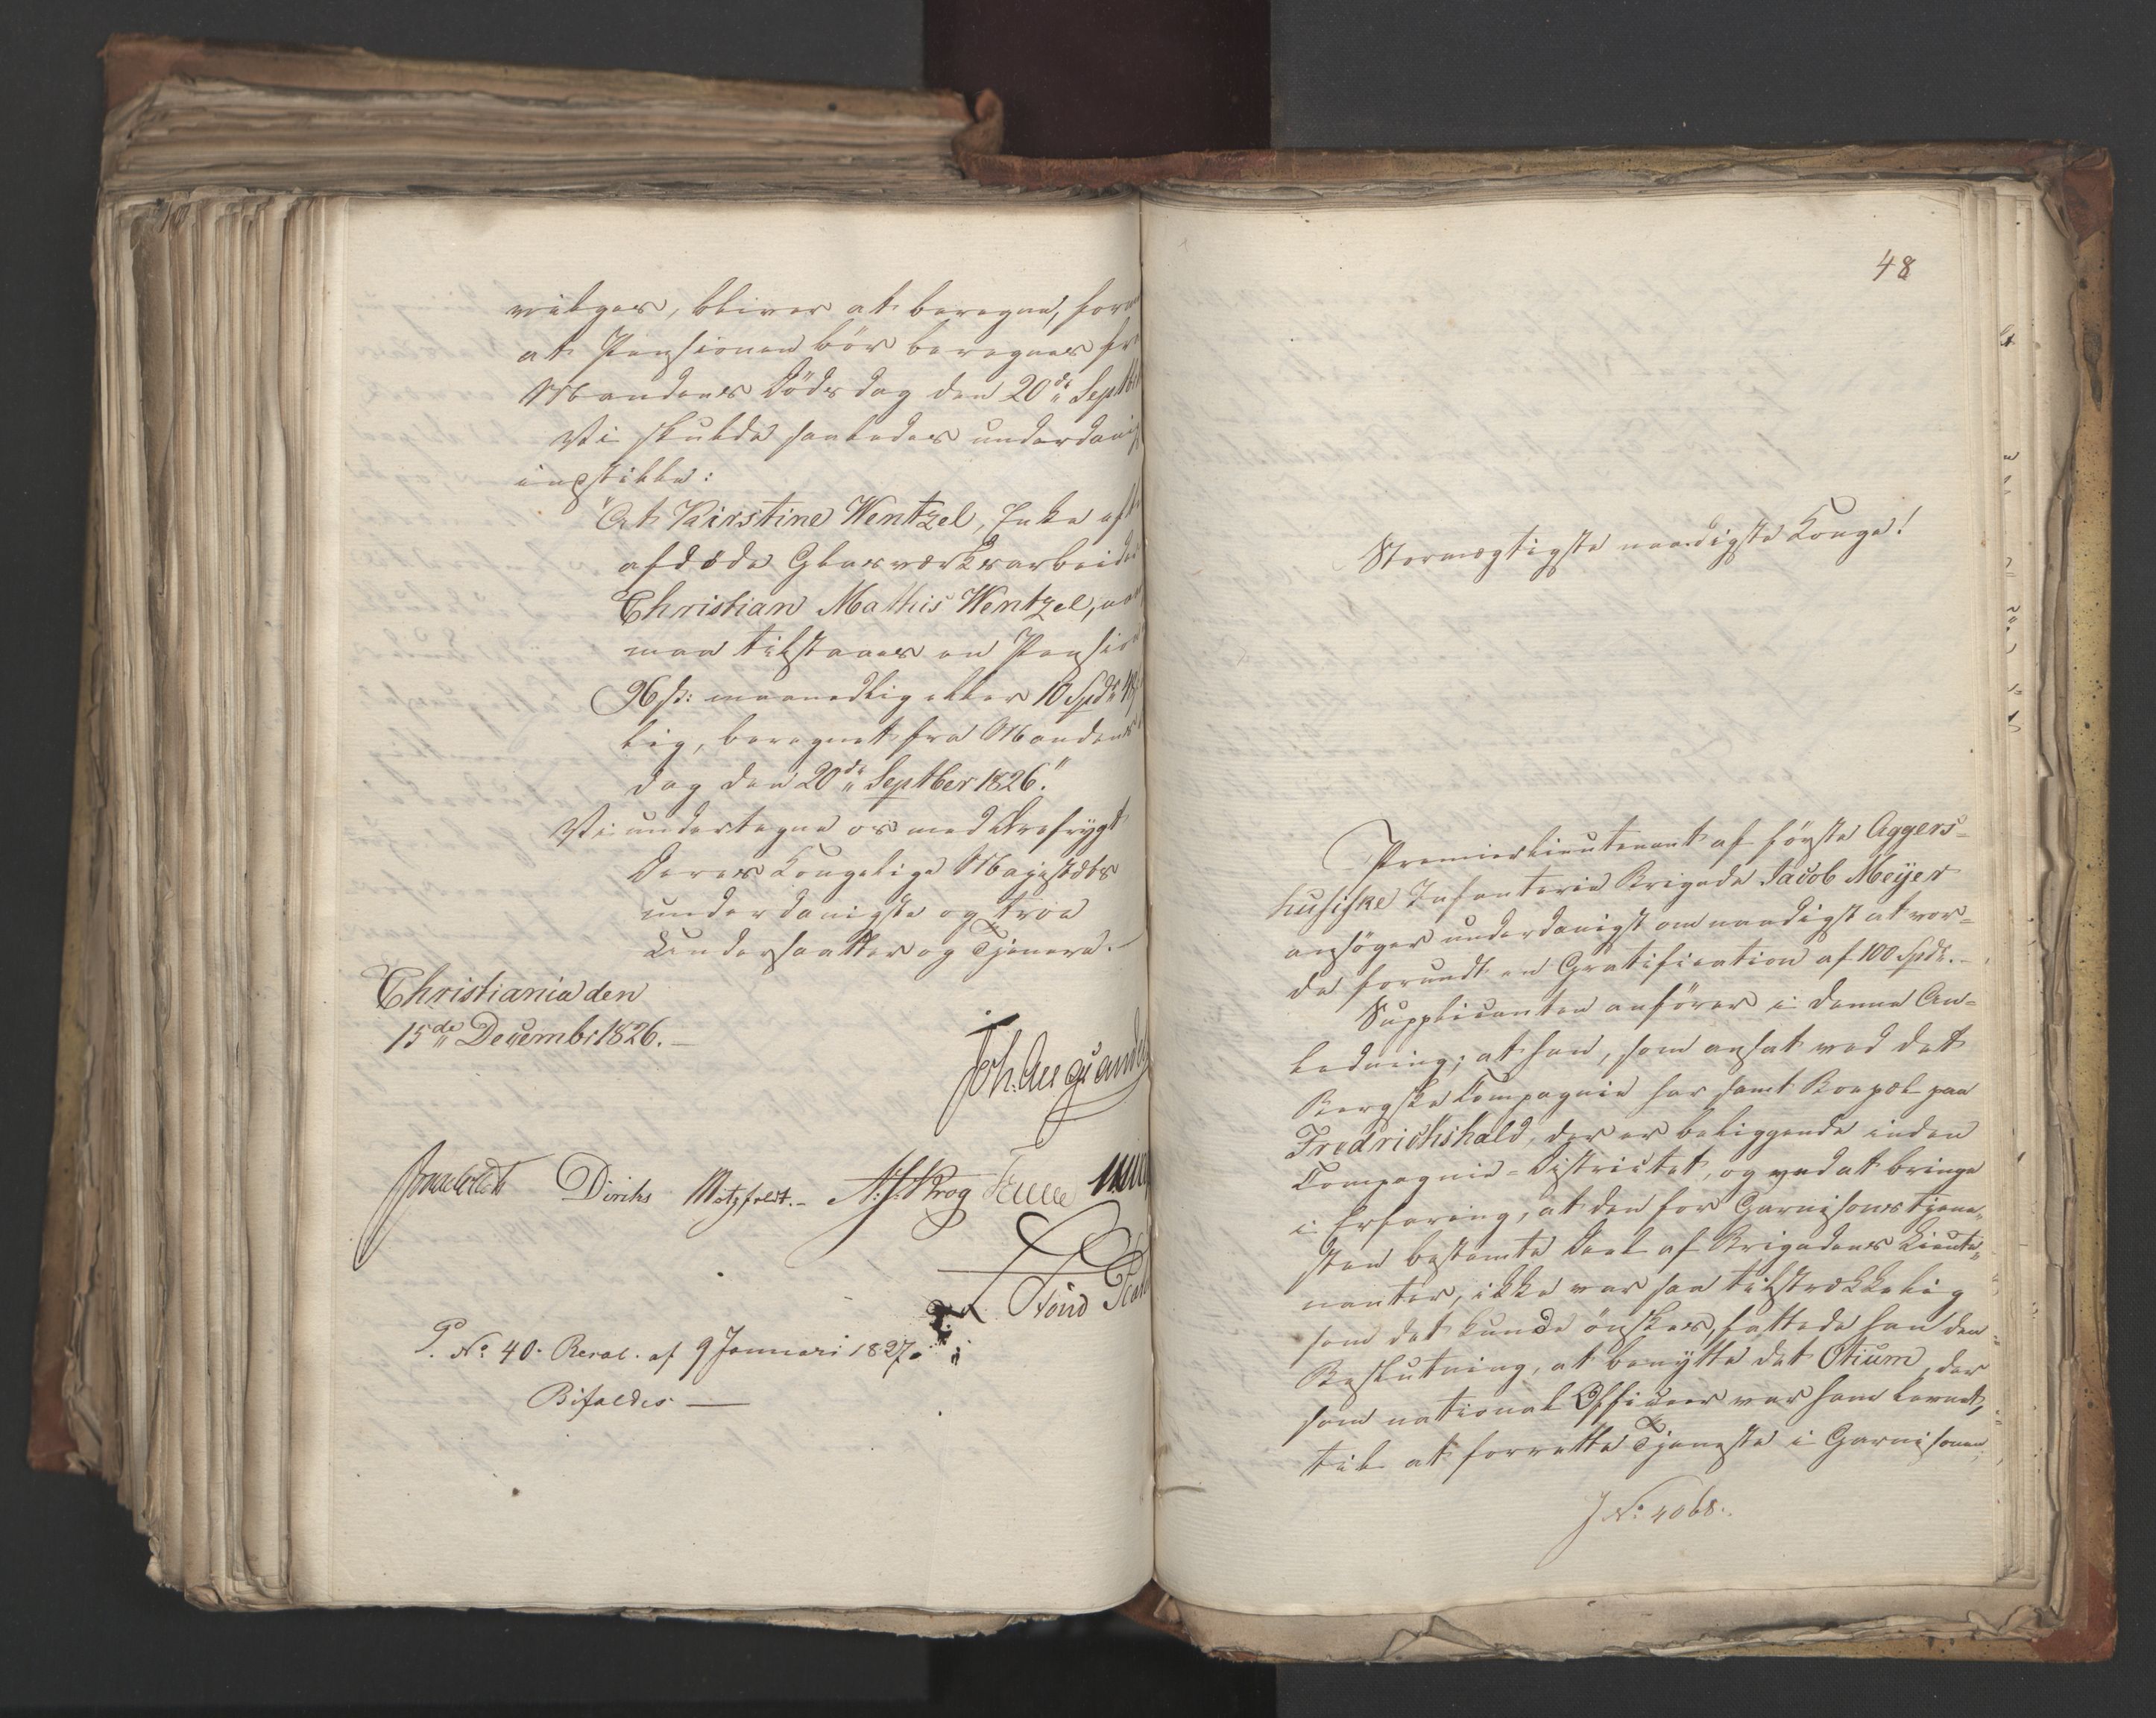 vilges, bliver at beregne, for
at Pensionen bör beregnes fr
Mandens Dödsdag den 20de Septb
Vi skulde saaledes underdanig
indstille:
"At Kirstine Wentzel, Enke eft
afdøde Glasværksarbeider
Christian Mathis Wentzel, 
maa tilstaaes en Pension
96 ß: maanedlig eller 10 Spd
lig, beregnet fra Mandens
dag den 20de Septber 1826."
Vi undertegne os med Ærefrygt
Deres Kongelige Majestæts
underdanigste og troe
Undersaatter og Tjenere.
Christiania den
15de Decembr 1826.
Diriks Motzfeldt. Krog
P. No. 40. Resol. af 9 Januari 1827.
Bifaldes —
48
Stormægtigste naadigste Konge!
Premierlieutenant af første Aggers=
husiske Infanterie Brigade Jacob Meyer
ansöger underdanigst om naadigst at vor=
de forundt en Gratification af 100 Spd.
Supplicanten anförer i denne An=
ledning; at han, som ansat ved det
Bergske Compagnie har havt Bopæl paa
Fredrichshald, der er beliggende inden
Compagnie=Districtet, og ved at bringe
i Erfaring, at den for Garnisonstjene=
sten bestemte Deel af Brigadens Lieute=
nanter, ikke var saa tilstrækkelig
som det kunde önskes, fattede han den
Beslutning, at benytte det Otium, der
som national Officeer var ham levnet,
til at forrette Tjeneste i Garnisonen,
J No. 4068.